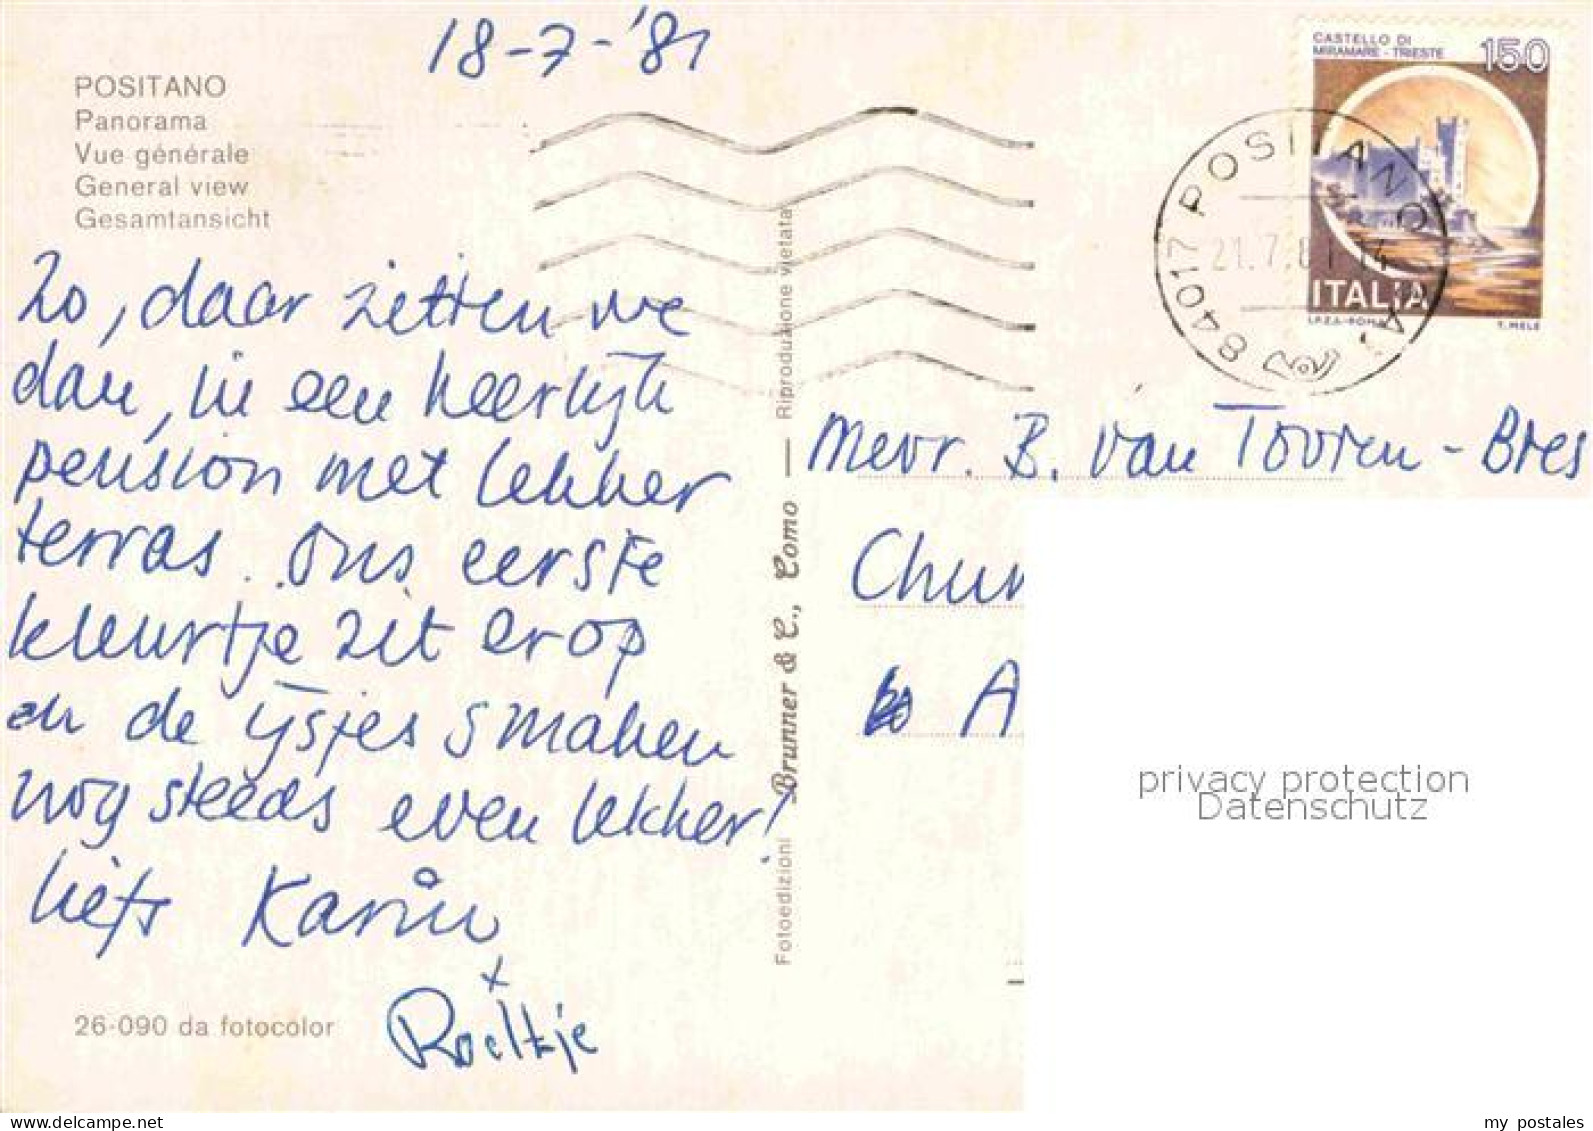 18-7-'81
POSITANO
Panorama
Vue générale
General view
Gesamtansicht
Zo, daar zitten we
dan, in een heerlijk
pension met lekker
terras. Ons eerste
kleurtje zit erop
en de ijsjes smaken
nog steeds even lekker!
liefs Karin
x
Roeltje
26-090 da fotocolor
Fotoedizioni Brunner & C., Como — Riproduzione vietata
CASTELLO DI
MIRAMARE - TRIESTE
150
ITALIA
I.P.Z.S.-ROMA T. MELE
84017 POSITANO (SA)
21.7.81 14
Mevr. B. van Tooren - Bres
Chur
A
privacy protection
Datenschutz
my postales